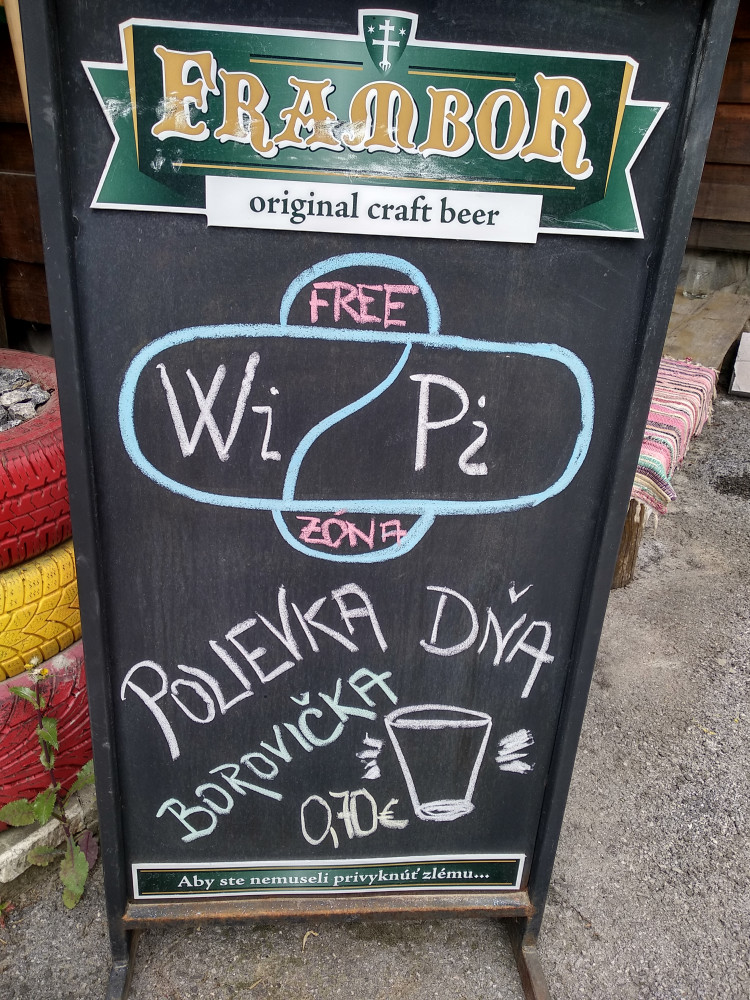 FRAMBOR
original craft beer
FREE
Wi Pi
ZÓNA
POLIEVKA DŇA
BOROVIČKA
0,70€
Aby ste nemuseli privyknúť zlému...